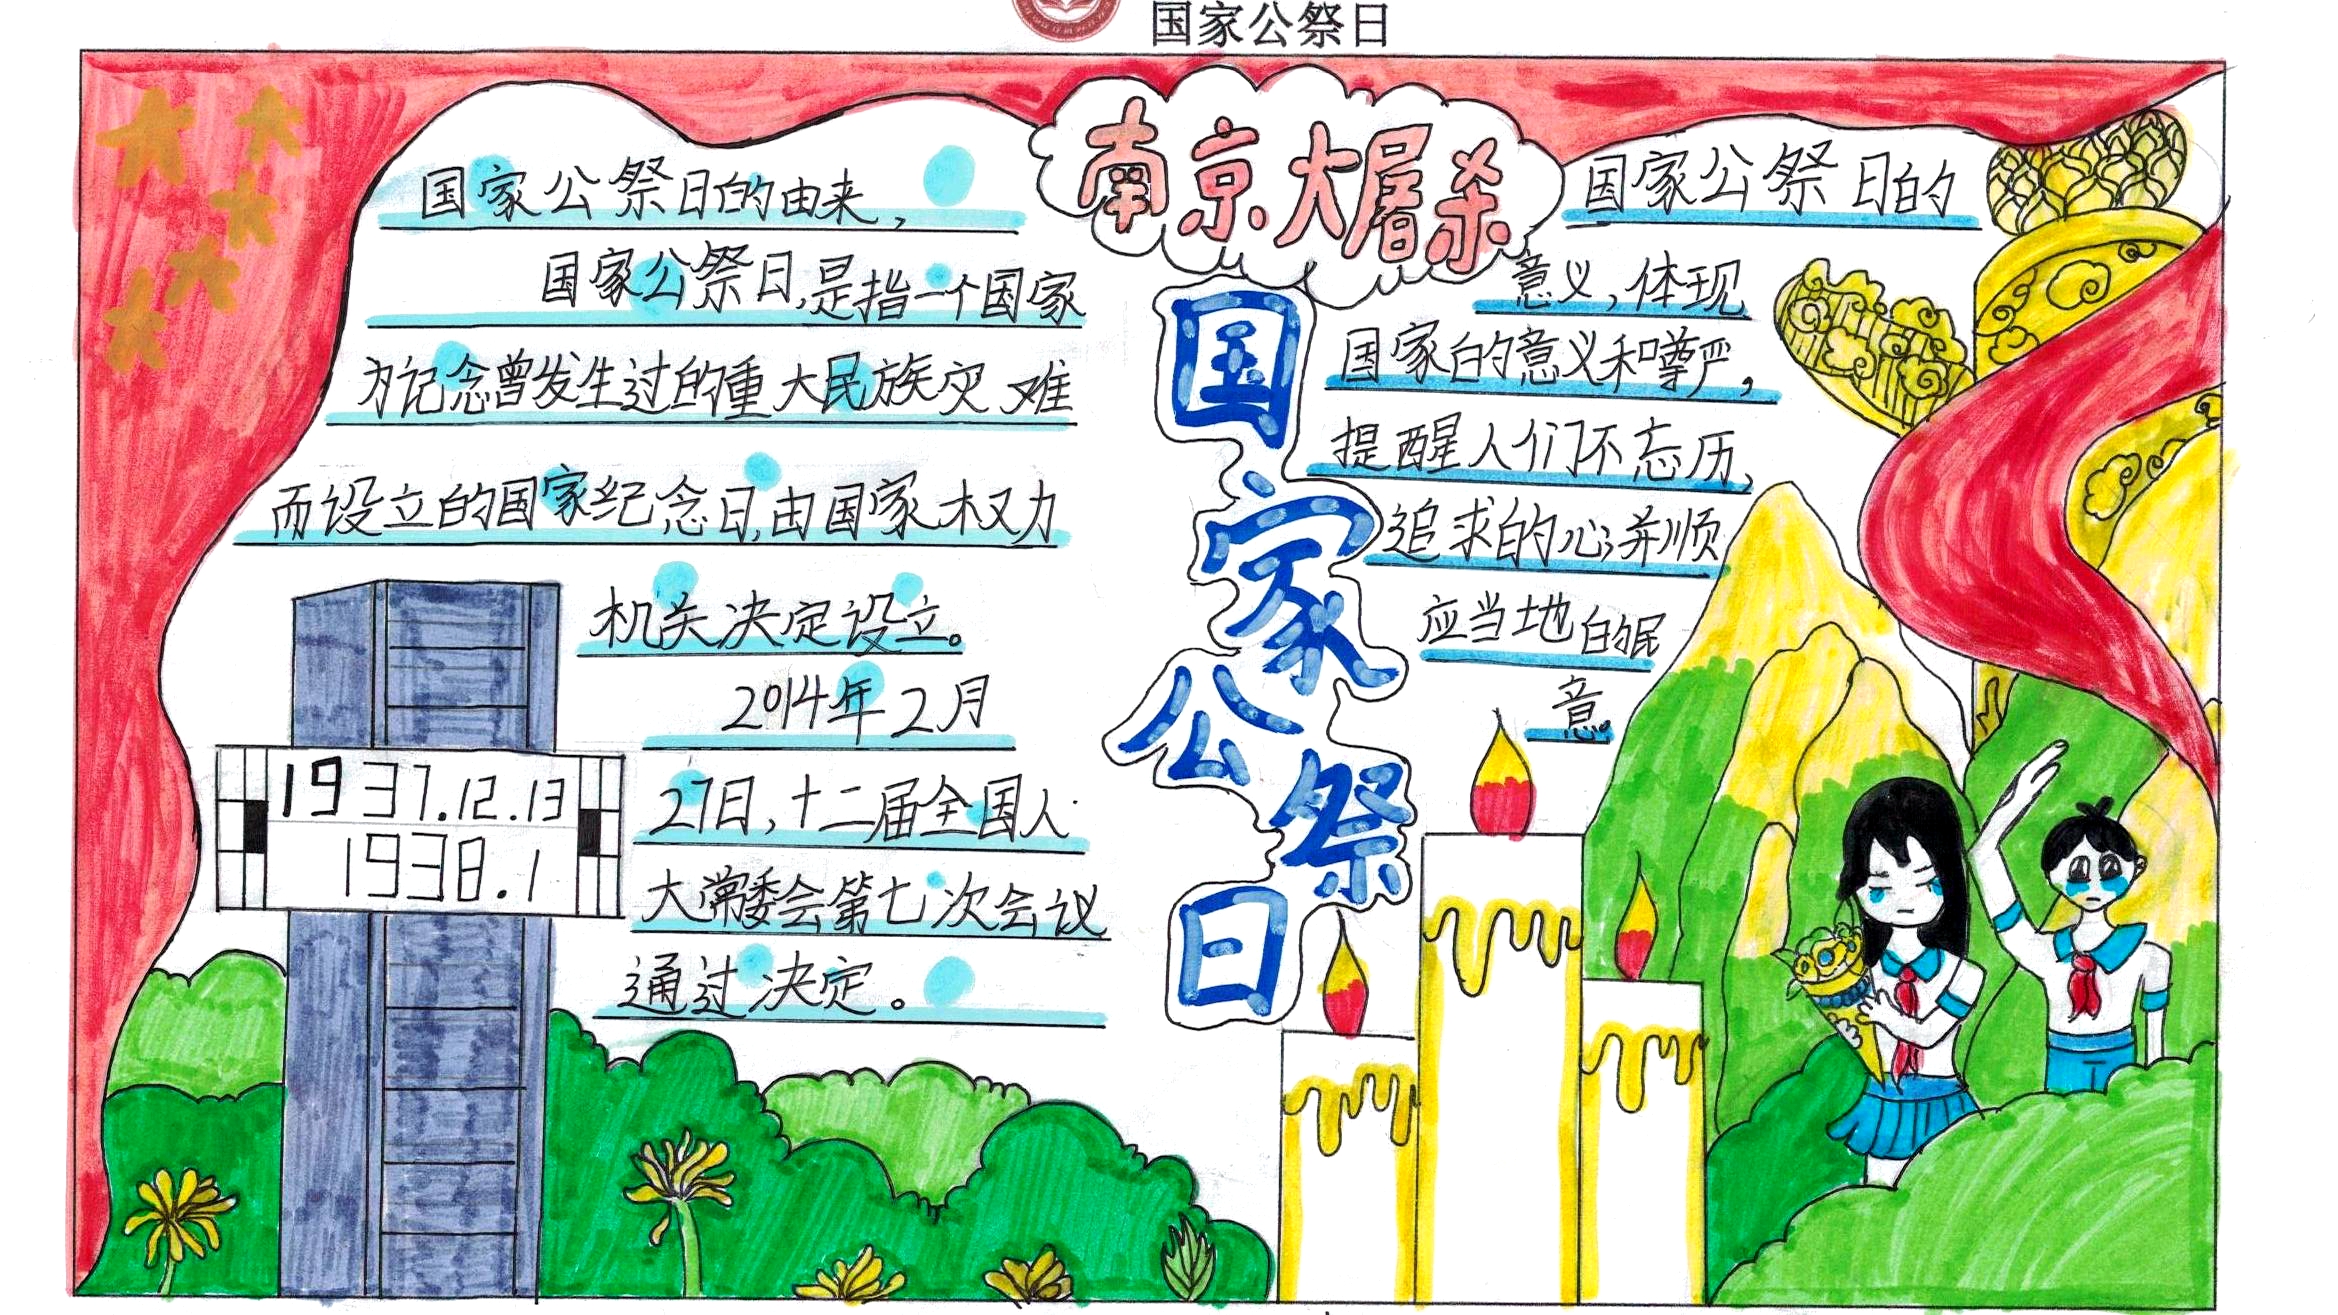 国家公祭日
南京大屠杀
国家公祭日
国家公祭日的由来，
国家公祭日,是指一个国家
为记念曾发生过的重大民族灾难
而设立的国家纪念日,由国家权力
机关决定设立。
2014年2月
27日,十二届全国人
大常委会第七次会议
通过决定。
1937.12.13
1938.1
国家公祭日的
意义，体现
国家的意义和尊严，
提醒人们不忘历、
追求的心,并顺
应当地的民
意。